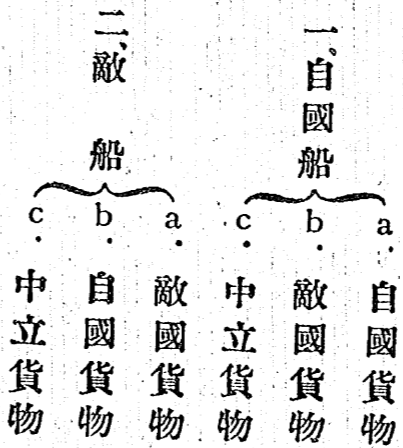 一、自國船
a. 自國貨物
b. 敵國貨物
c. 中立貨物
二、敵船
a. 敵國貨物
b. 自國貨物
c. 中立貨物